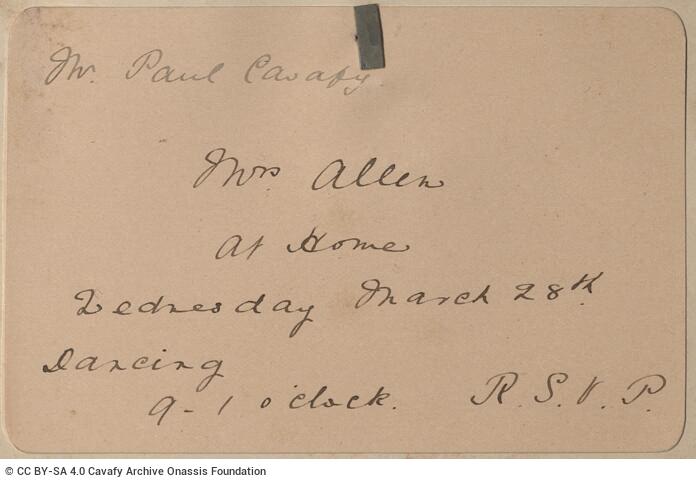 Mr. Paul Cavafy.
Mrs Allen
At Home
Wednesday March 28th.
Dancing
9-1 o'clock. R.S.V.P.
© CC BY-SA 4.0 Cavafy Archive Onassis Foundation